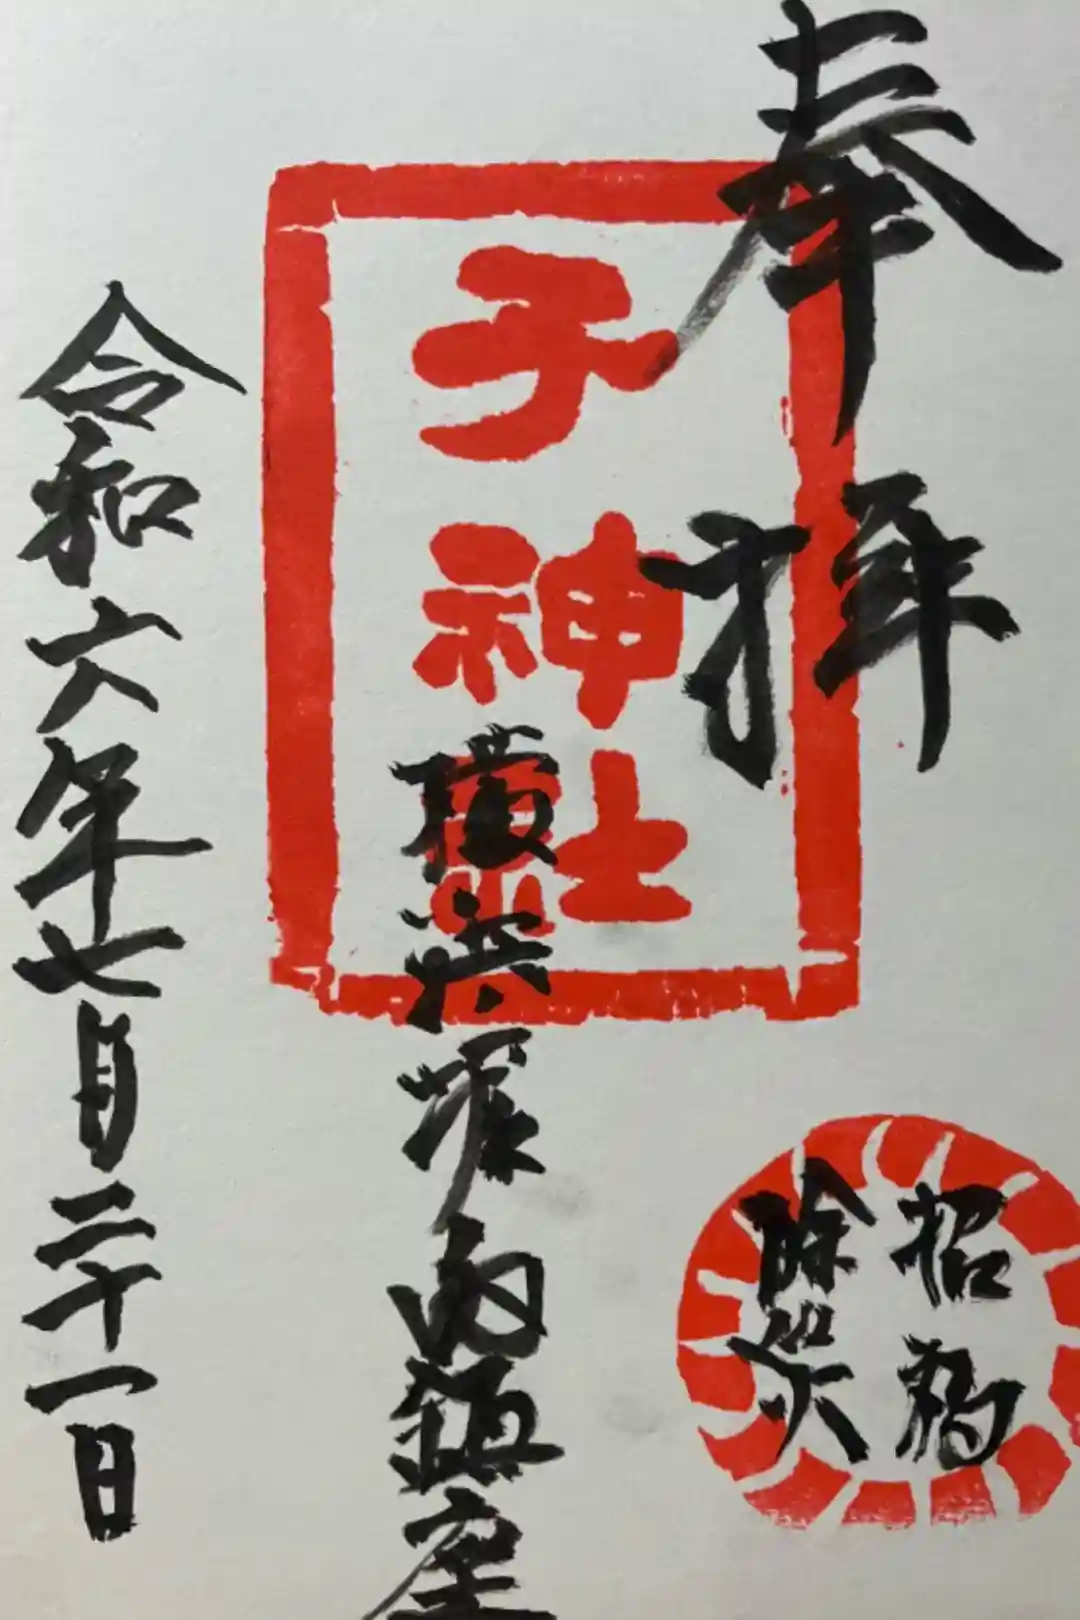 奉拝
招福
除災
子神社
横浜堀ノ内鎮座
令和六年七月二十一日